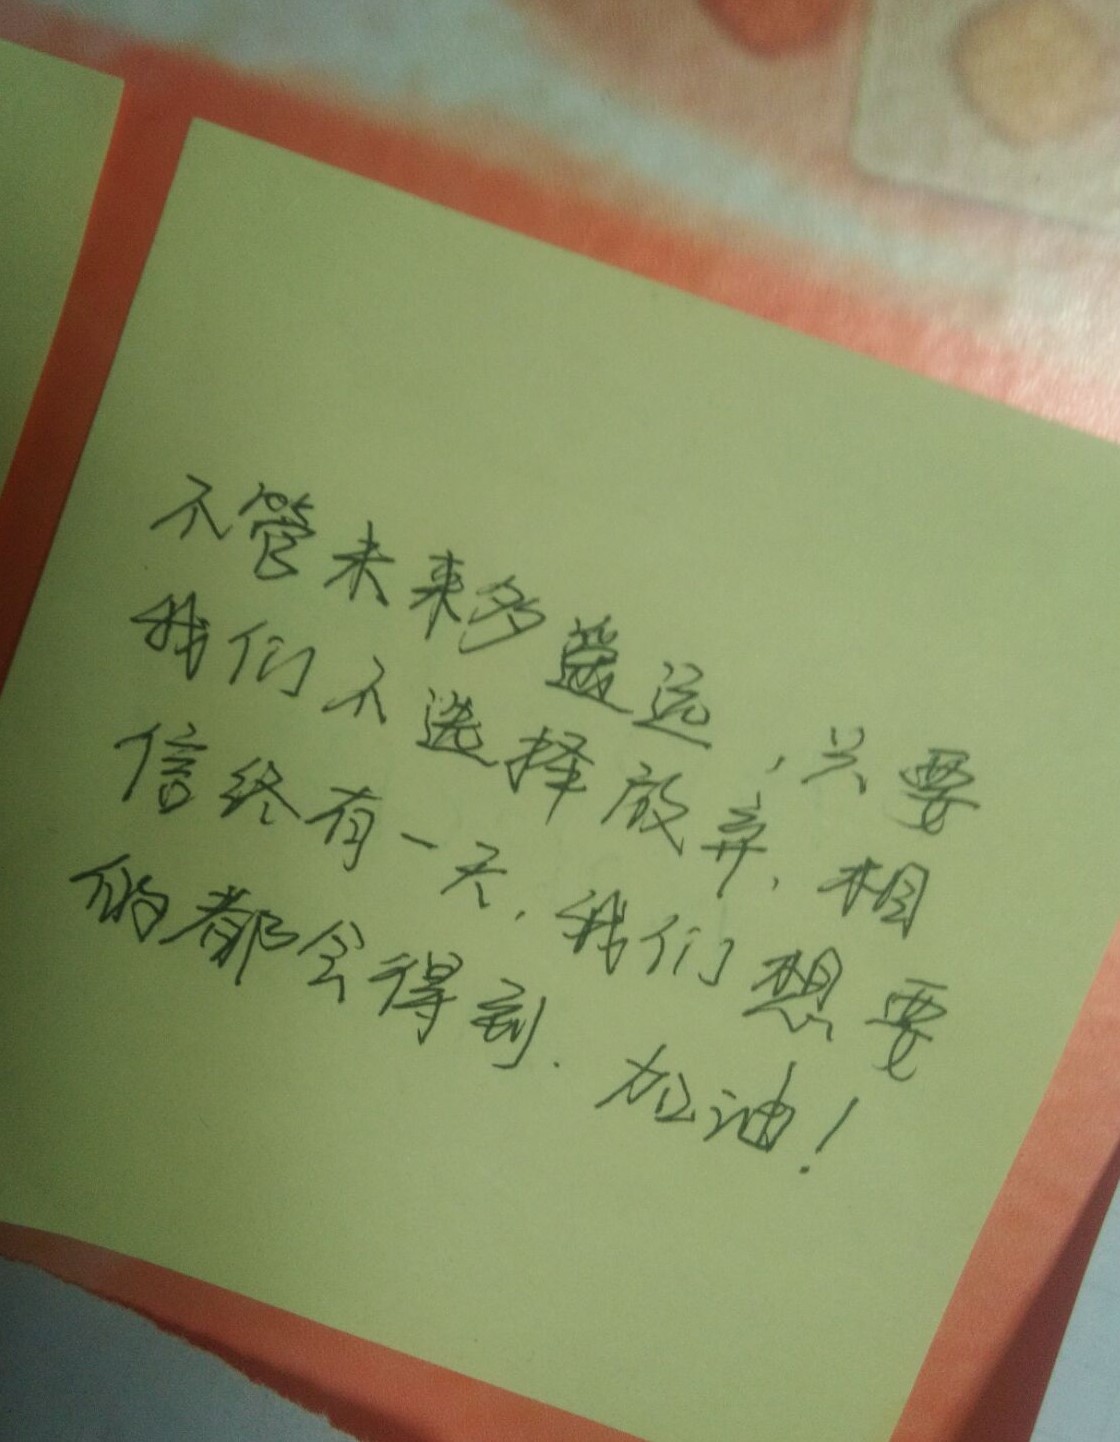 不管未来多遥远，只要
我们不选择放弃，相
信终有一天，我们想要
的都会得到．加油！